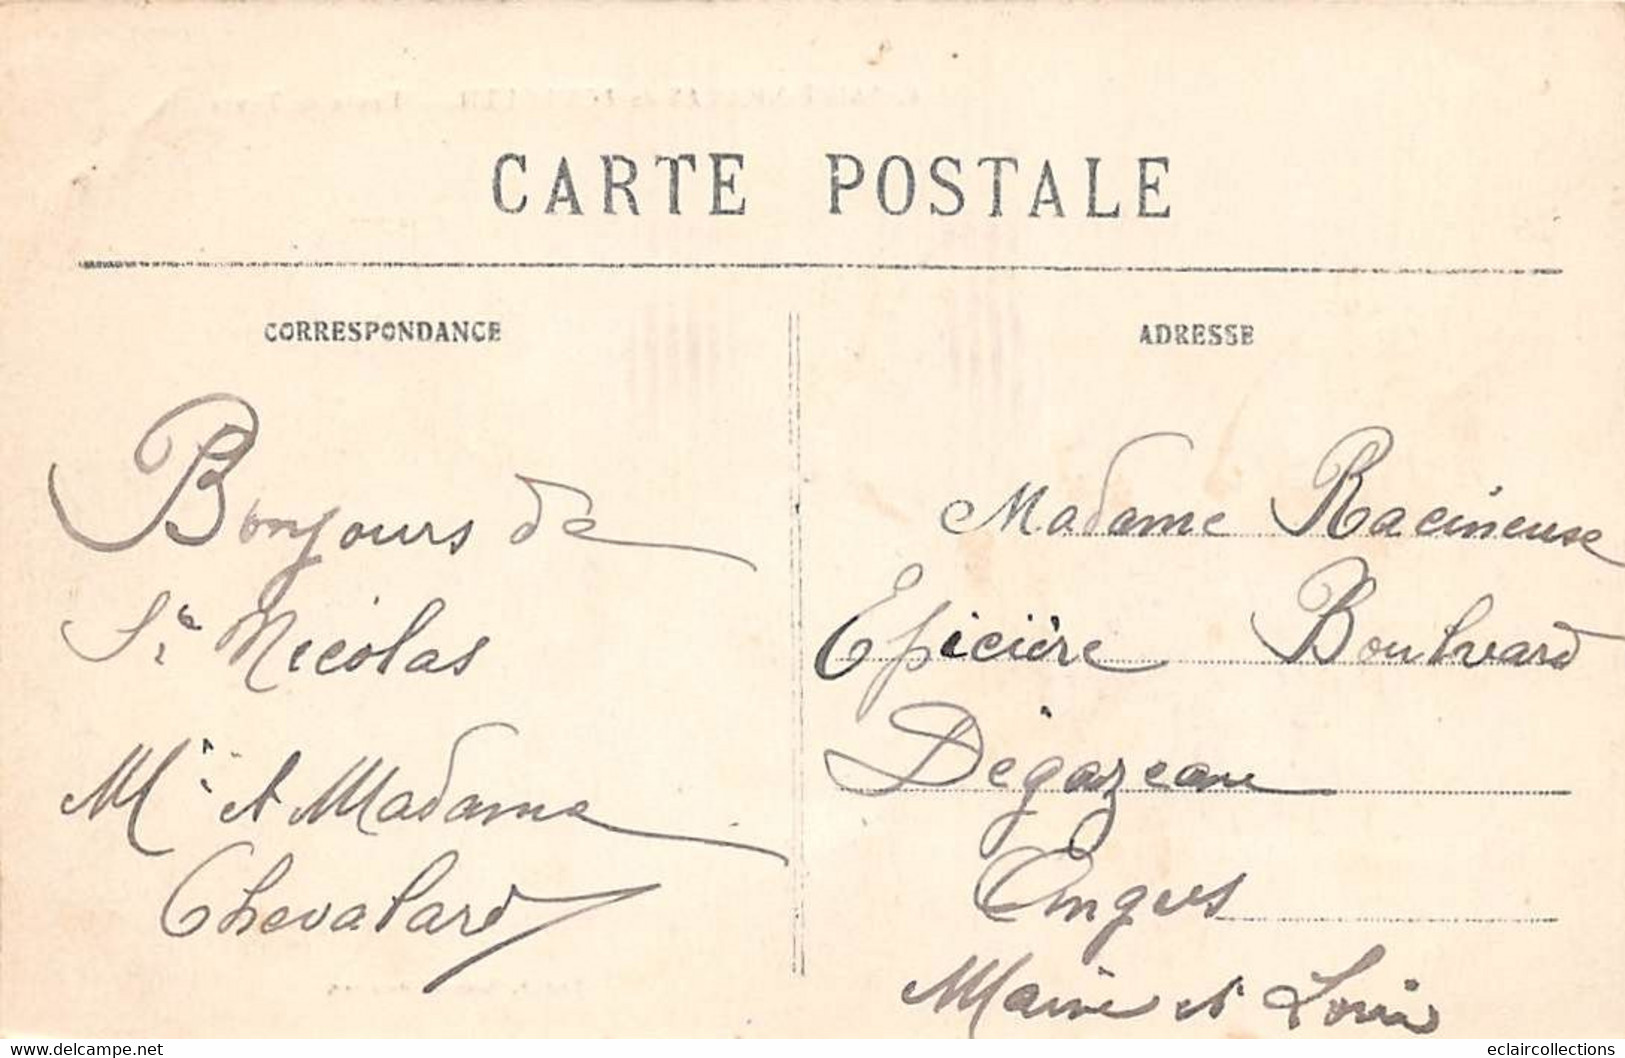 CARTE POSTALE
CORRESPONDANCE
Bonjours de
St Nicolas
Mr et Madame
Chevalard
ADRESSE
Madame Racineuse
Epicière Boulvard
Dégazeau
Angers
Maine et Loire
eclaircollections